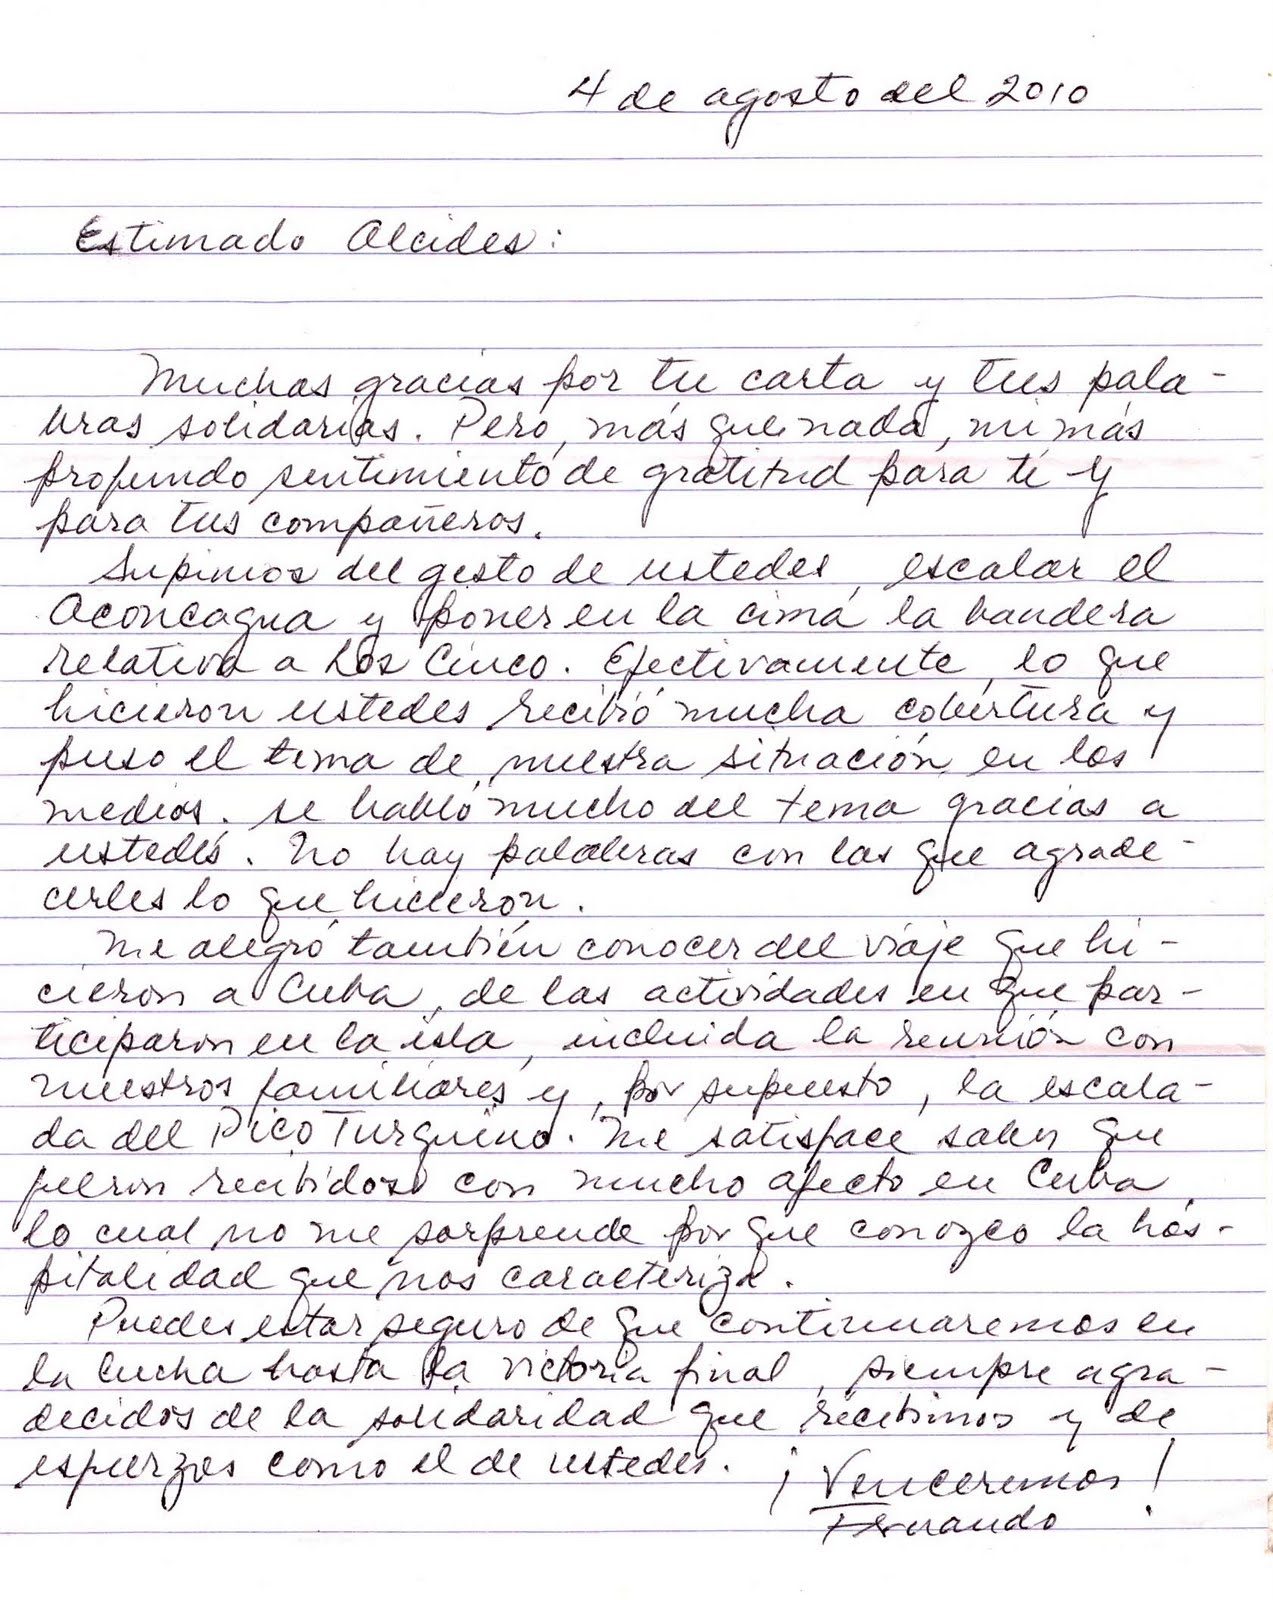 4 de agosto del 2010
Estimado Alcides:
Muchas gracias por tu carta y tus pala-
bras solidarias. Pero, más que nada, mi más
profundo sentimiento de gratitud para ti y
para tus compañeros.
Supimos del gesto de ustedes, escalar el
Aconcagua y poner en la cima la bandera
relativa a Los Cinco. Efectivamente, lo que
hicieron ustedes recibió mucha cobertura y
puso el tema de nuestra situación en los
medios. Se habló mucho del tema gracias a
ustedes. No hay palabras con las que agrade-
cerles lo que hicieron.
Me alegró también conocer del viaje que hi-
cieron a Cuba, de las actividades en que par-
ticiparon en la isla, incluida la reunión con
nuestros familiares y, por supuesto, la escala-
da del Pico Turquino. Me satisface saber que
fueron recibidos con mucho afecto en Cuba,
lo cual no me sorprende porque conozco la hos-
pitalidad que nos caracteriza.
Puedes estar seguro de que continuaremos en
la lucha hasta la victoria final, siempre agra-
decidos de la solidaridad que recibimos y de
esfuerzos como el de ustedes.
¡Venceremos!
Fernando